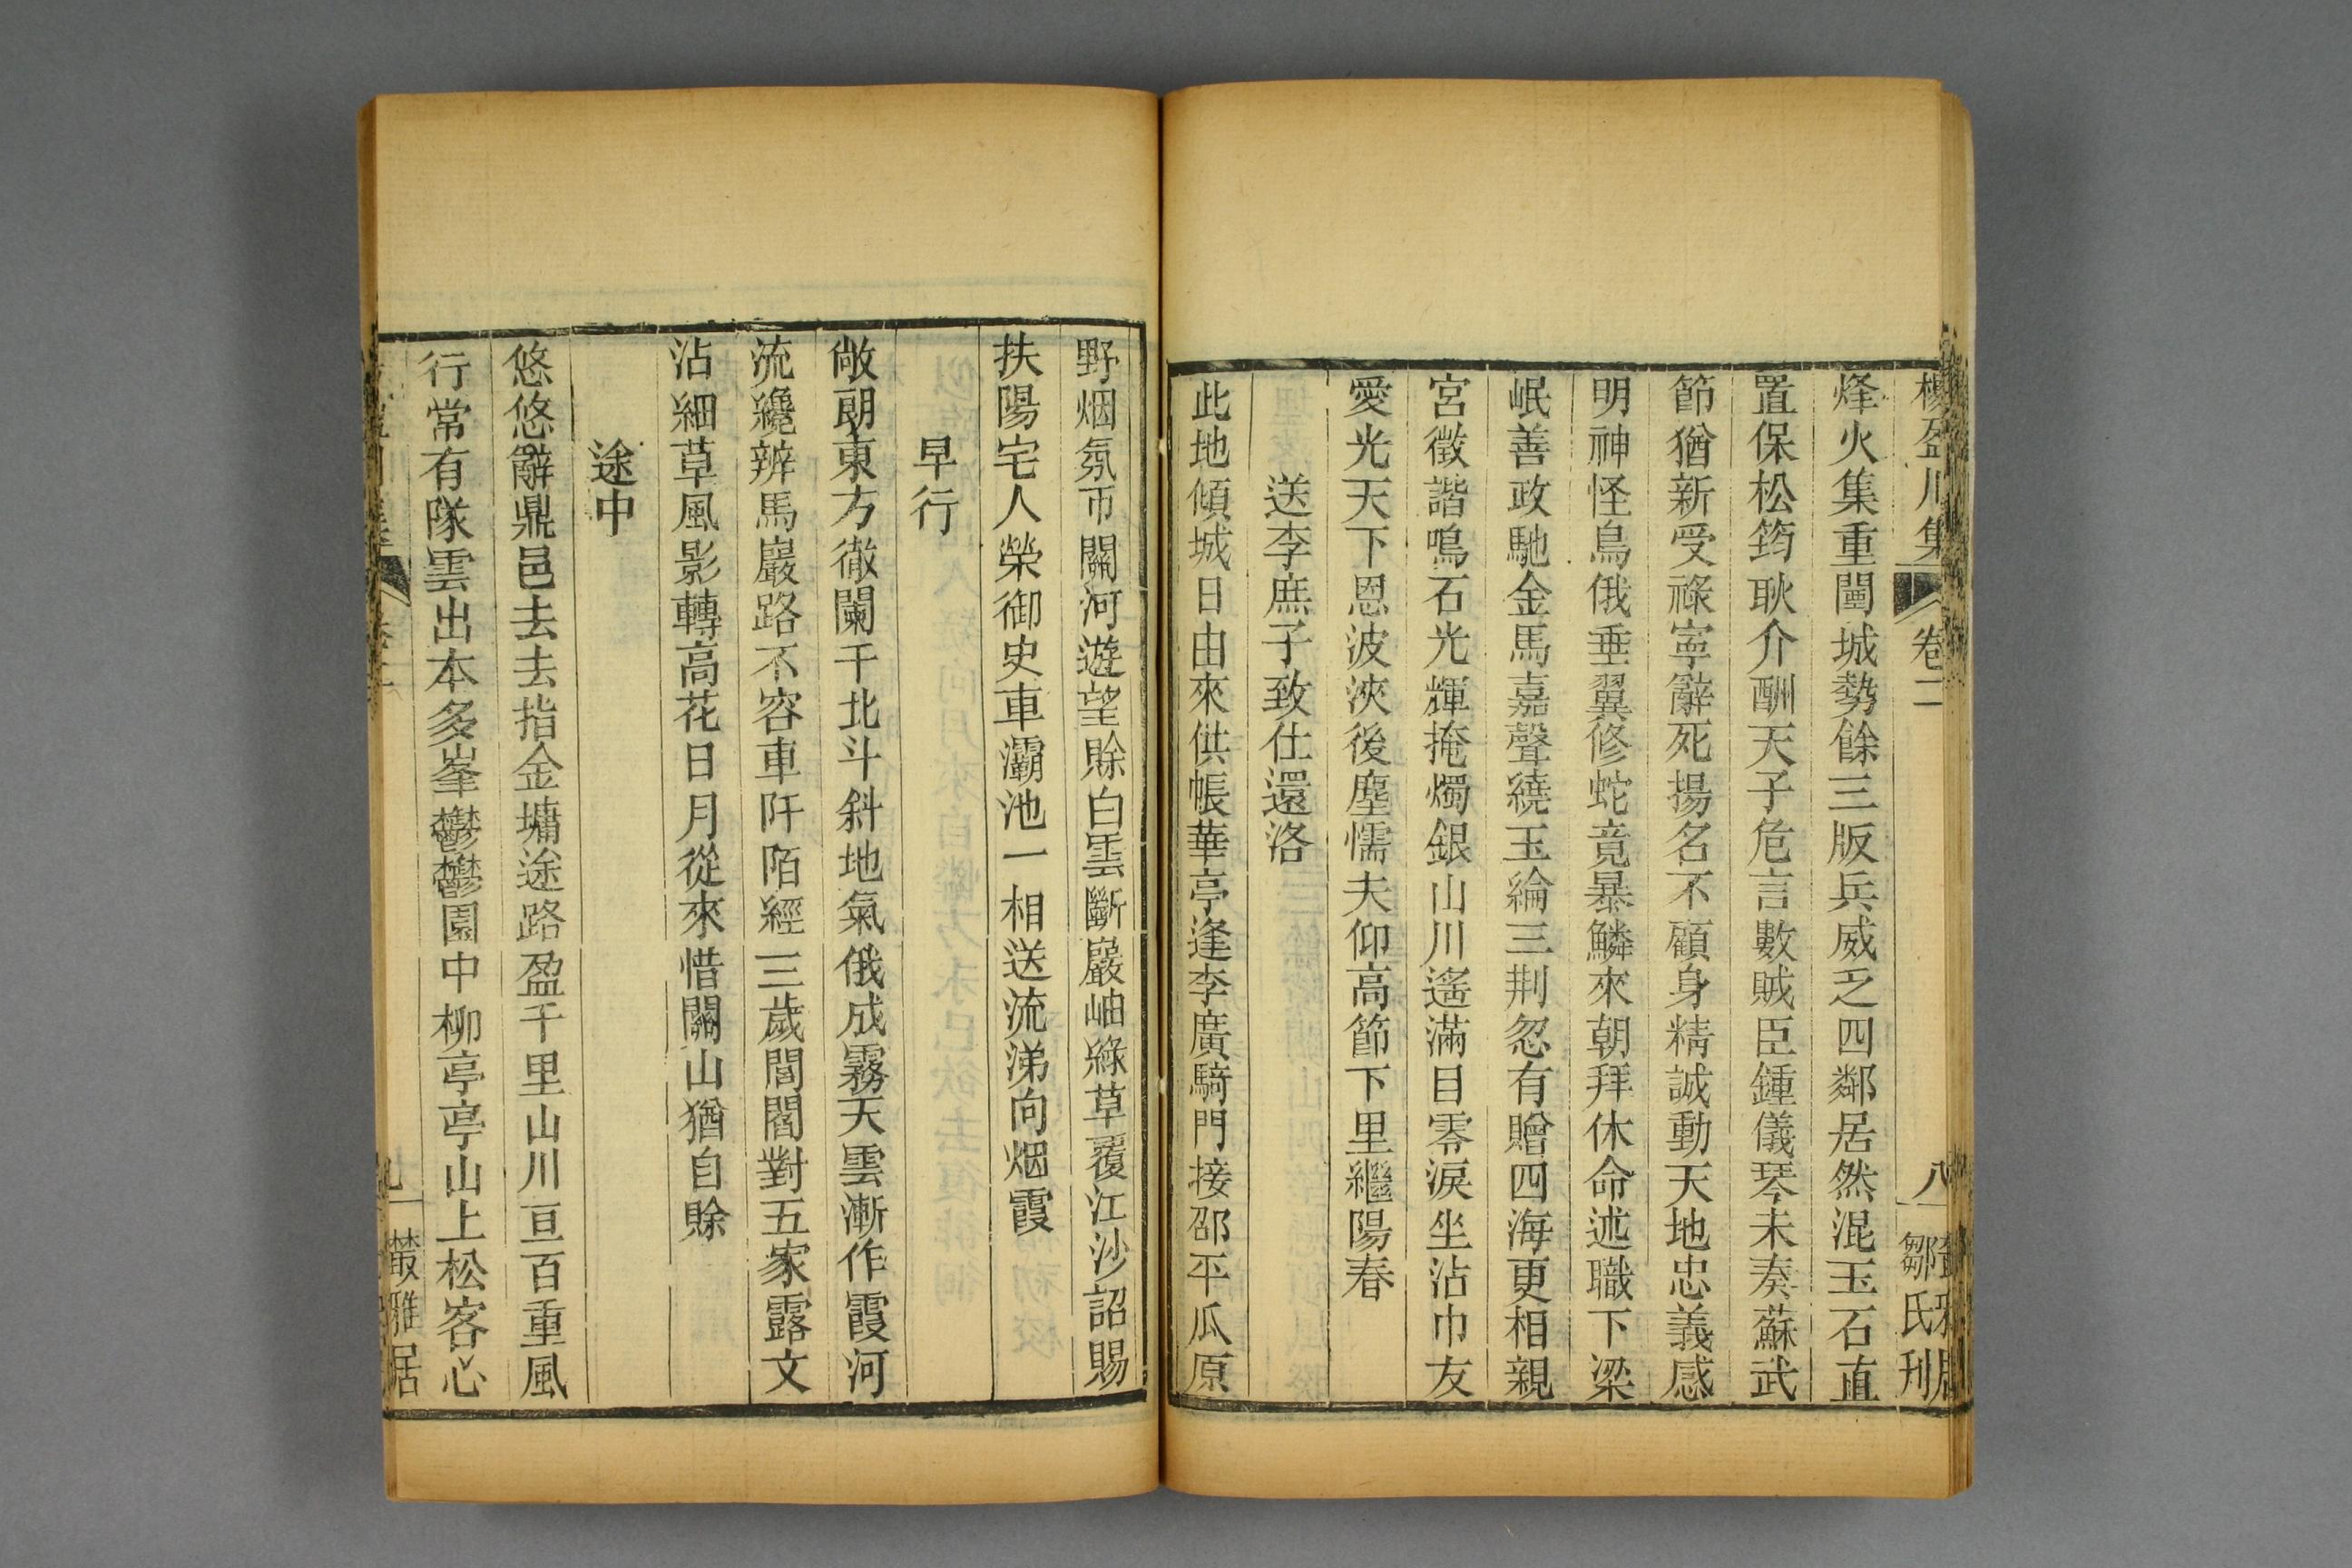 楊盈川集 卷二 八 鄒氏刊
烽火集重闉城勢餘三版兵威乏四鄰居然混玉石直
置保松筠耿介酬天子危言數賊臣鍾儀琴未奏蘇武
節猶新受祿寧辭死揚名不顧身精誠動天地忠義感
明神怪鳥俄垂翼修蛇竟暴鱗來朝拜休命述職下梁
岷善政馳金馬嘉聲繞玉綸三荆忽有贈四海更相親
宮徵諧鳴石光輝掩燭銀山川遙滿目零淚坐沾巾友
愛光天下恩波浹後塵懦夫仰高節下里繼陽春
送李庶子致仕還洛
此地傾城日由來供帳華亭逢李廣騎門接邵平瓜原
野烟氛帀關河遊望賒白雲斷巖岫綠草覆江沙詔賜
扶陽宅人榮御史車灞池一相送流涕向烟霞
早行
敞朗東方徹闌干北斗斜地氣俄成霧天雲漸作霞河
流纔辨馬巖路不容車阡陌經三歲閭閻對五家露文
沾細草風影轉高花日月從來惜關山猶自賒
途中
悠悠辭鼎邑去去指金墉途路盈千里山川亘百重風
行常有隊雲出本多峯鬱鬱園中柳亭亭山上松客心
九 叢雅居